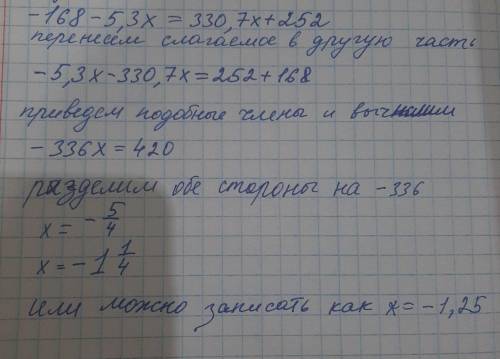 -168-5,3x=330,7x+252
перенесём слагаемое в другую часть
-5,3x-330,7x=252+168
приведем подобные члены и
-336x=420
разделим обе стороны на -336
x=-5/4
x=-1 1/4
или можно записать как x=-1,25